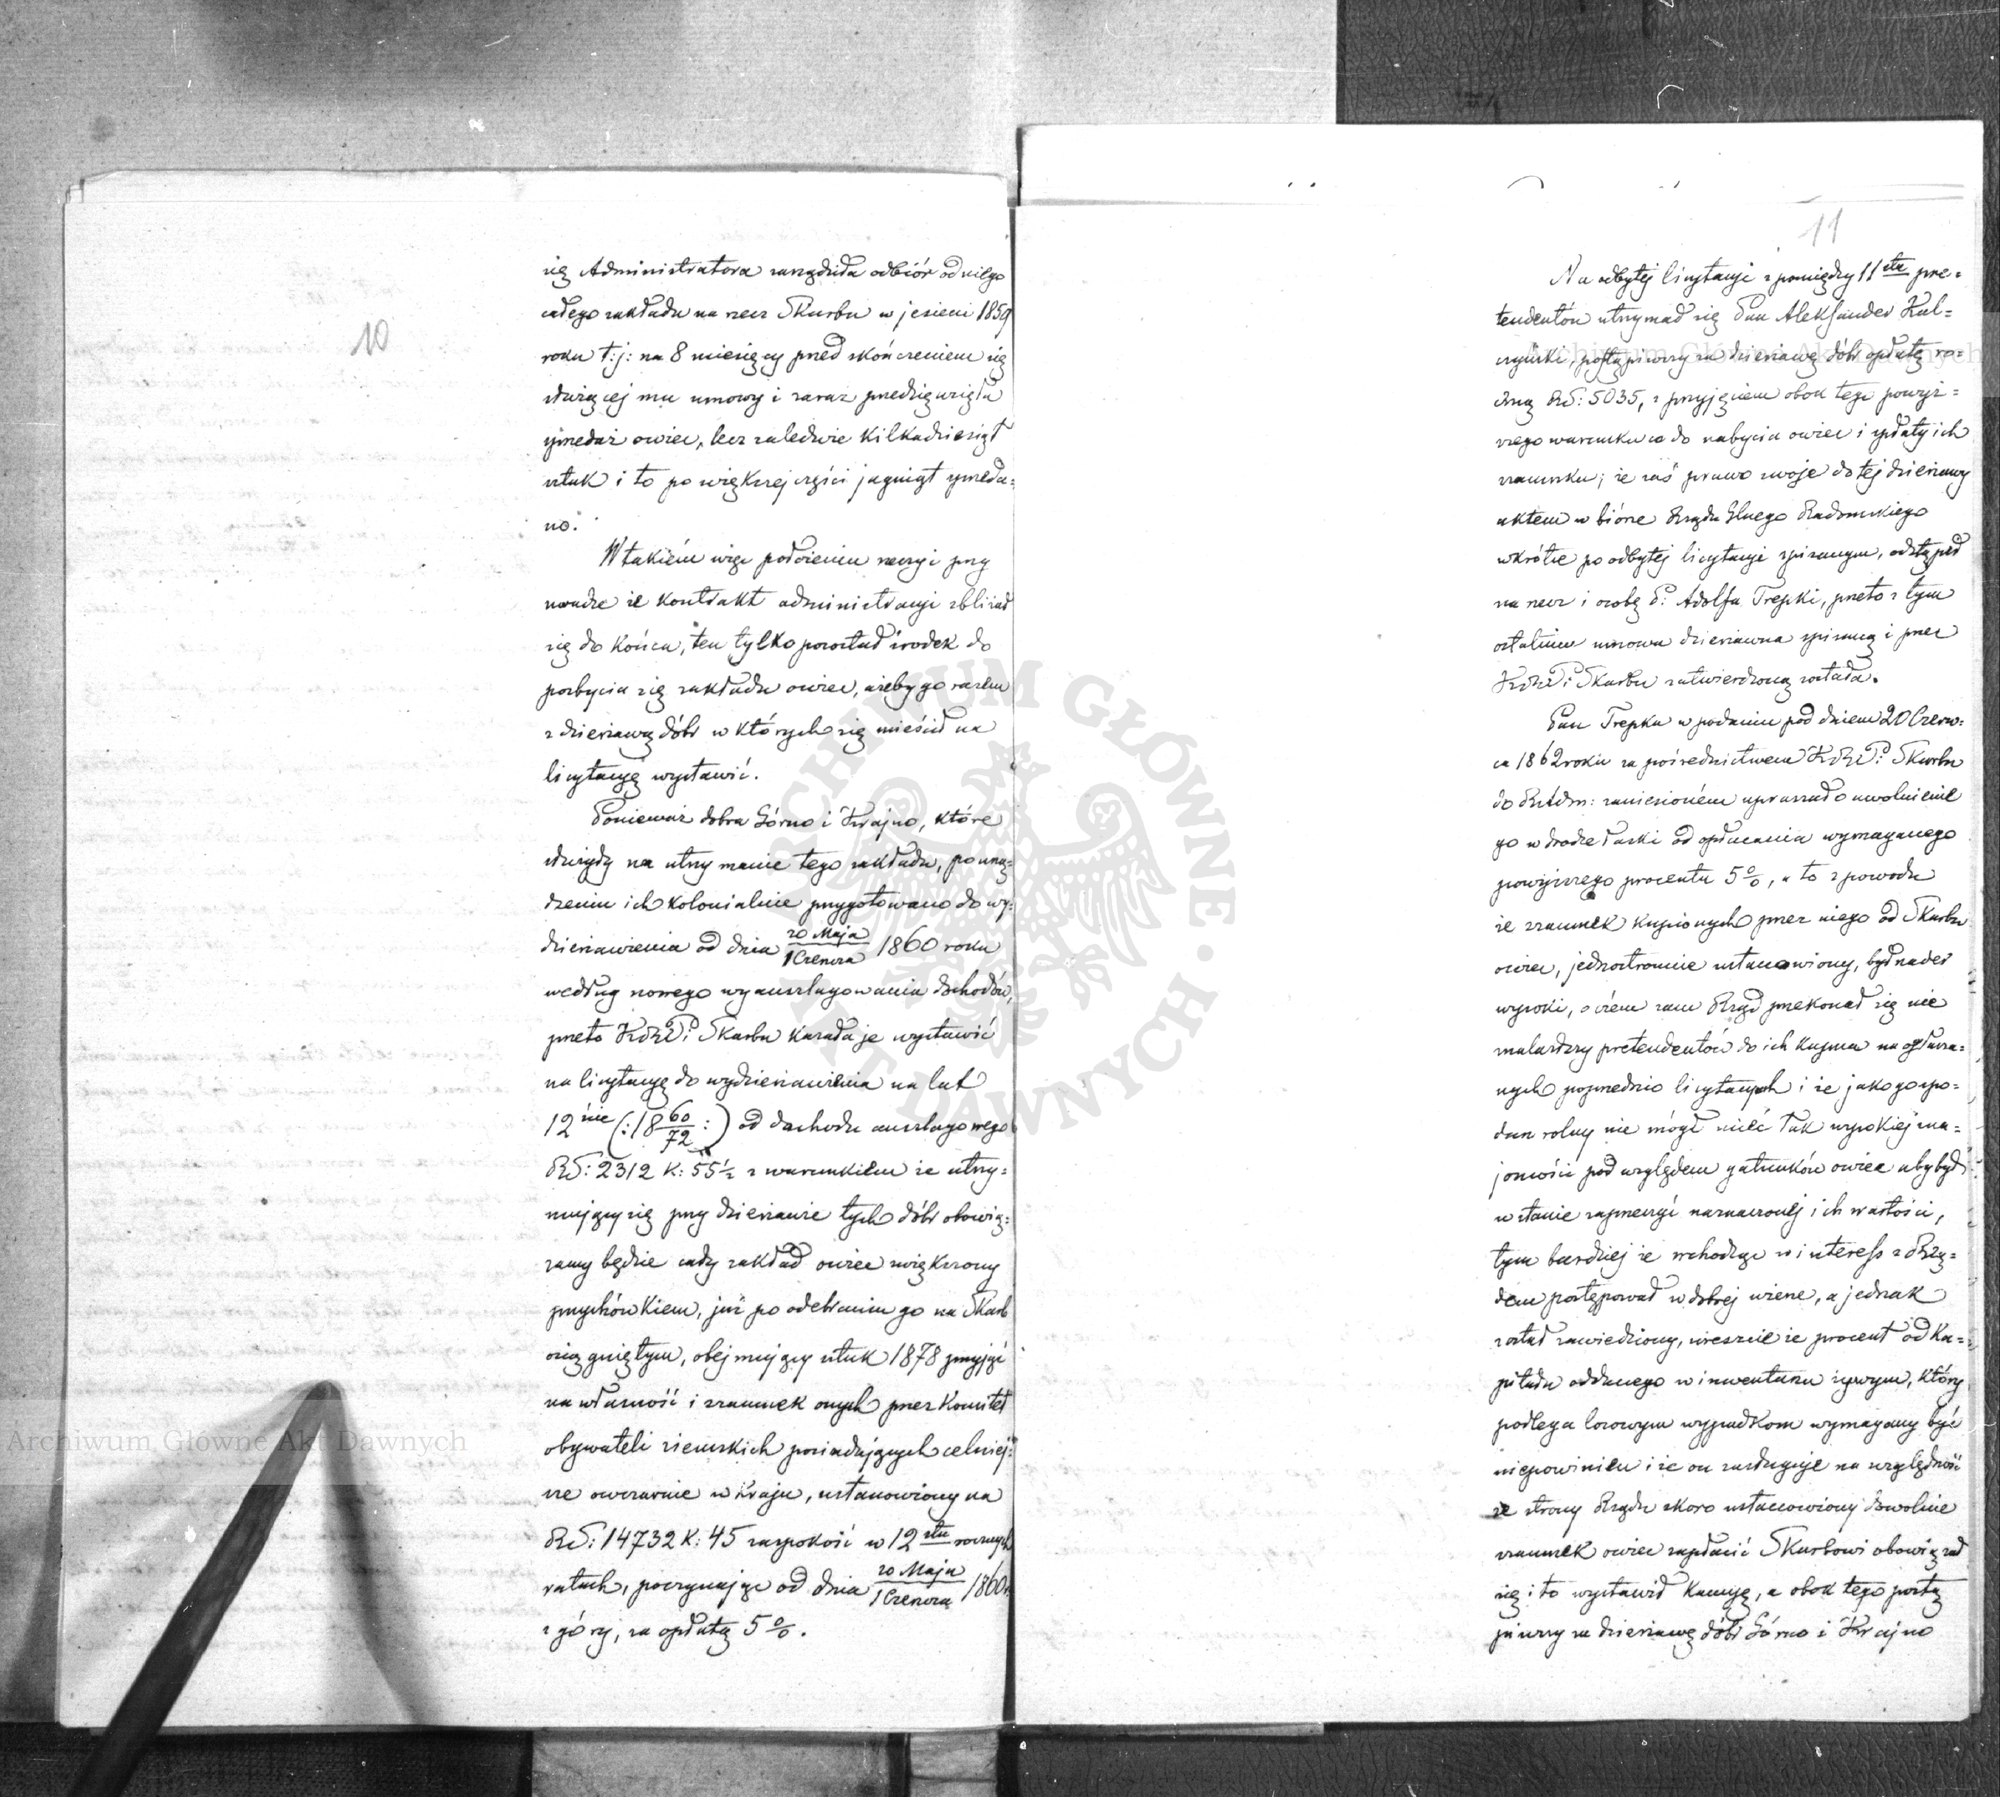 10
się Administratora zarządziła odbiór od niego
całego zakładu na rzecz Skarbu w jesieni 1859
roku t:j: na 8 miesięcy przed skończeniem się
służącej mu umowy i zaraz przedsięwzięła
sprzedaż owiec, lecz zaledwie kilkadziesiąt
sztuk i to po większej części jagniąt sprzeda=
no.
W takiém więc położeniu rzeczy i przy
uwadze że kontrakt administracyi zbliżał
się do końca, ten tylko pozostał środek do
pozbycia się zakładu owiec, ażeby go razem
z dzierżawą dóbr w których się mieścił na
licytacyę wystawić.
Ponieważ dobra Górno i Krajno, które
służyły na utrzymanie tego zakładu, po urzą=
dzeniu ich kolonialnie przygotowano do wy=
dzierżawienia od dnia 20 Maja/1 Czerwca 1860 roku
według nowego wyanszlagowania dochodów,
przeto K.R.P. i Skarbu kazała je wystawić
na licytacyę do wydzierżawienia na lat
12ście (:18 60/72:) od dochodu anszlagowego
RS: 2312 K: 55½ z warunkiem że utrzy=
mujący się przy dzierżawie tych dóbr obowią=
zany będzie cały zakład owiec zwiększony
przychówkiem, już po odebraniu go na Skarb
osiągniętym, obejmujący sztuk 1878 przyjąć
na własność i szacunek onych przez Komitet
obywateli ziemskich posiadających celniej=
sze owczarnie w Kraju, ustanowiony na
RS: 14732 K: 45 zaspokoić w 12stu rocznych
ratach, poczynając od dnia 20 Maja/1 Czerwca 1860 r.
z góry, za opłatą 5%.
11
Na odbytej licytacyi z pomiędzy 11stu pre=
tendentów utrzymał się Pan Aleksander Kul=
czycki, postąpiwszy za dzierżawę dóbr opłatę ro=
czną RS: 5035, z przyjęciem obok tego powyż=
szego warunku co do nabycia owiec i spłaty ich
szacunku; że zaś prawo swoje do tej dzierżawy
aktem w biórze Rządu Glnego Radomskiego
wkrótce po odbytej licytacyi spisanym, odstąpił
na rzecz i osobę P. Adolfa Trepki, przeto z tym
ostatnim umowa dzierżawna spisaną i przez
K.R.P. i Skarbu zatwierdzoną została.
Pan Trepka w podaniu pod dniem 20 Czerw=
ca 1862 roku za pośrednictwem K.R.P. i Skarbu
do RAdm: zaniesioném upraszał o uwolnienie
go w drodze łaski od opłacania wymaganego
powyższego procentu 5%, a to z powodu
że szacunek kupionych przez niego od Skarbu
owiec, jednostronnie ustanowiony, był nader
wysoki, o czém sam Rząd przekonał się nie
znalazłszy pretendentów do ich kupna na ogłasza=
nych poprzednio licytacyach i że jako gospo=
darz rolny nie mógł mieć tak wysokiej zna=
jomości pod względem gatunków owiec aby był
w stanie zaprzeczyć naznaczonej ich wartości,
tym bardziej że wchodząc w interess z Rzą=
dem postępował w dobrej wierze, a jednak
został zawiedziony, wreszcie że procent od Ka=
pitału oddanego w inwentarzu żywym, który
podlega losowym wypadkom wymagany być
niepowinien i że on zasługuje na względność
ze strony Rządu skoro ustanowiony dowolnie
szacunek owiec zapłacić Skarbowi obowiązał
się i to wystawił Kaucyę, a obok tego postą
piwszy za dzierżawę dóbr Górno i Krajno